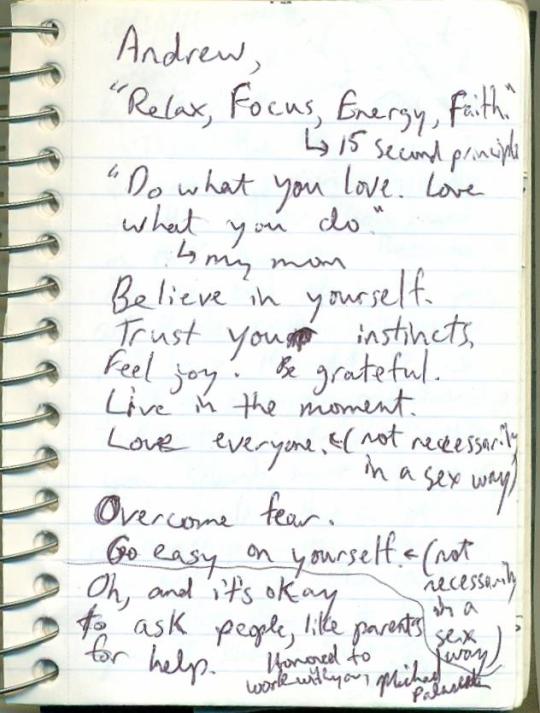 Andrew,
"Relax, Focus, Energy, Faith."
↳ 15 second principle
"Do what you love. Love
what you do."
↳ my mom
Believe in yourself.
Trust your instincts,
Feel joy. Be grateful.
Live in the moment.
Love everyone. ← (not necessarily
in a sex way)
Overcome fear.
Go easy on yourself. ← (not
necessarily
in a
sex
way)
Oh, and it's okay
to ask people, like parents
for help.
Honored to
work with you,
Michael